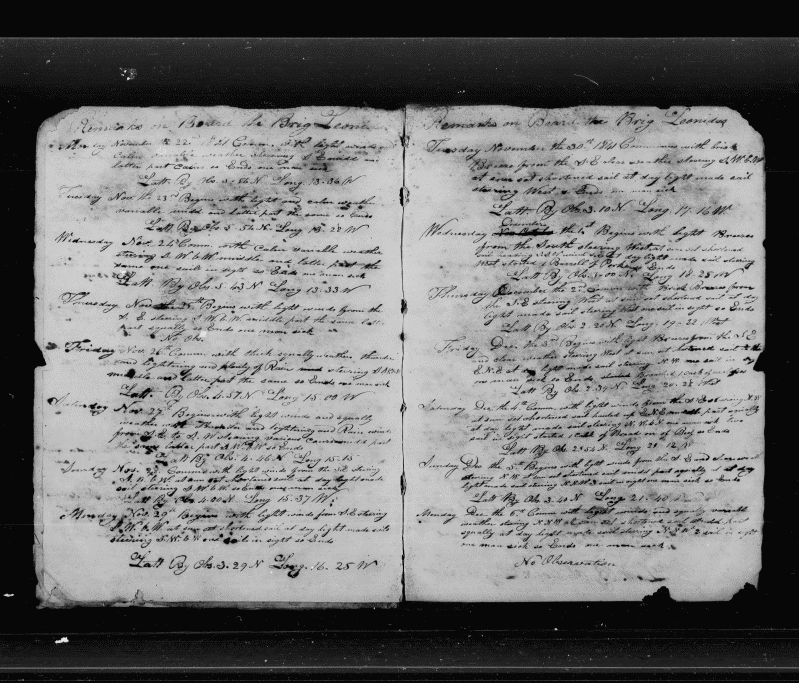 Remarks on Board the Brig Leonidas
Monday November the 22nd Comm. light winds
Calm variable weather steering S E middle and
latter part Calm so Ends
Latt By Obs 5.56 N Long 13.36 W
Tuesday Nov the 23rd Begins with light and calm weather
variable middle and latter part the same so Ends
Latt By Obs 5.56 N Long 13.28 W
Wednesday Nov. 24th Comm. with Calm variable weather
steering S. W b W middle and latter part the
same one sail in sight so Ends one man sick
Latt By Obs 5.43 N Long 13.33 W
Thursday Nov the 25th Begins with light winds from the
S. E steering S W b W middle part the same latter
part squally so Ends one man sick
No Obs
Friday Nov 26 Comm. with thick squally weather thunder
and lightning and plenty of Rain wind steering
middle and latter part the same so Ends one man sick
Latt. By Obs 4.57 N Long 15.00 W
Saturday Nov. 27th Begins with light winds and squally
weather with Thunder and lightning and Rain wind
from S. E to S. W
the same latter part so Ends
Latt By Obs 4.46 N Long 15.15
Sunday Nov. 28 Comm with light winds from the S. E steering
S W b W at sun set shortened sail at day light made
sail steering S. W b W so Ends one man sick
Latt By Obs 4.00 N Long 15.37 W
Monday Nov. 29th Begins with light winds from S. E steering
S. W. b W at sun set shortened sail at day light made sail
steering S. W. b W one sail in sight so Ends
Latt By Obs 3.29 N Long. 16.25 W
Remarks on Board the Brig Leonidas
Tuesday November the 30th 1841 Commences with brisk
Breezes from the S. E clear weather steering S. W. b W
at sun set shortened sail at day light made sail
steering West so Ends one man sick
Latt. By Obs 3.10 N Long 17.16 W.
December
Wednesday the 1st Begins with light Breezes
from the South steering West at sun set shortened
sail at day light made sail steering
West started 1 Barrell of so Ends
Latt By Obs 3.00 N Long 18.25 W
Thursday December the 2nd Comm. with Brisk Breezes from
the S. E steering West at sun set shortened sail at day
light made sail steering West one sail in sight so Ends
Latt By Obs 2.20 N Long. 19.22 West
Friday Dec. the 3rd Begins with light Breezes from the S. E
and clear weather steering West at sun set shortened sail
at day light made sail steering one sail in
one man sick so Ends started 1 Cask of
Latt By Obs 2.39 N Long 20.28 West
Saturday Dec the 4th Comm. with light winds from the S. E steering N. W
at sun set shortened sail part squally
at day light made sail steering N. W. b N one man sick two
sail in sight started 1 so Ends
Latt By Obs 2.54 N Long 21.12 W
Sunday Dec the 5th Begins with light winds from the S E and
steering N. W. at sun set shortened sail middle part squally at day
light made sail steering N. N. W 3 sail in sight one man sick so Ends
Latt By Obs 3.40 N Long. 21.40
Monday Dec. the 6th Comm with light winds and squally variable
weather steering N. N W at sun set shortened sail middle part
squally at day light made sail steering N. N W 2 sail in sight
one man sick so Ends one man sick
No Observation